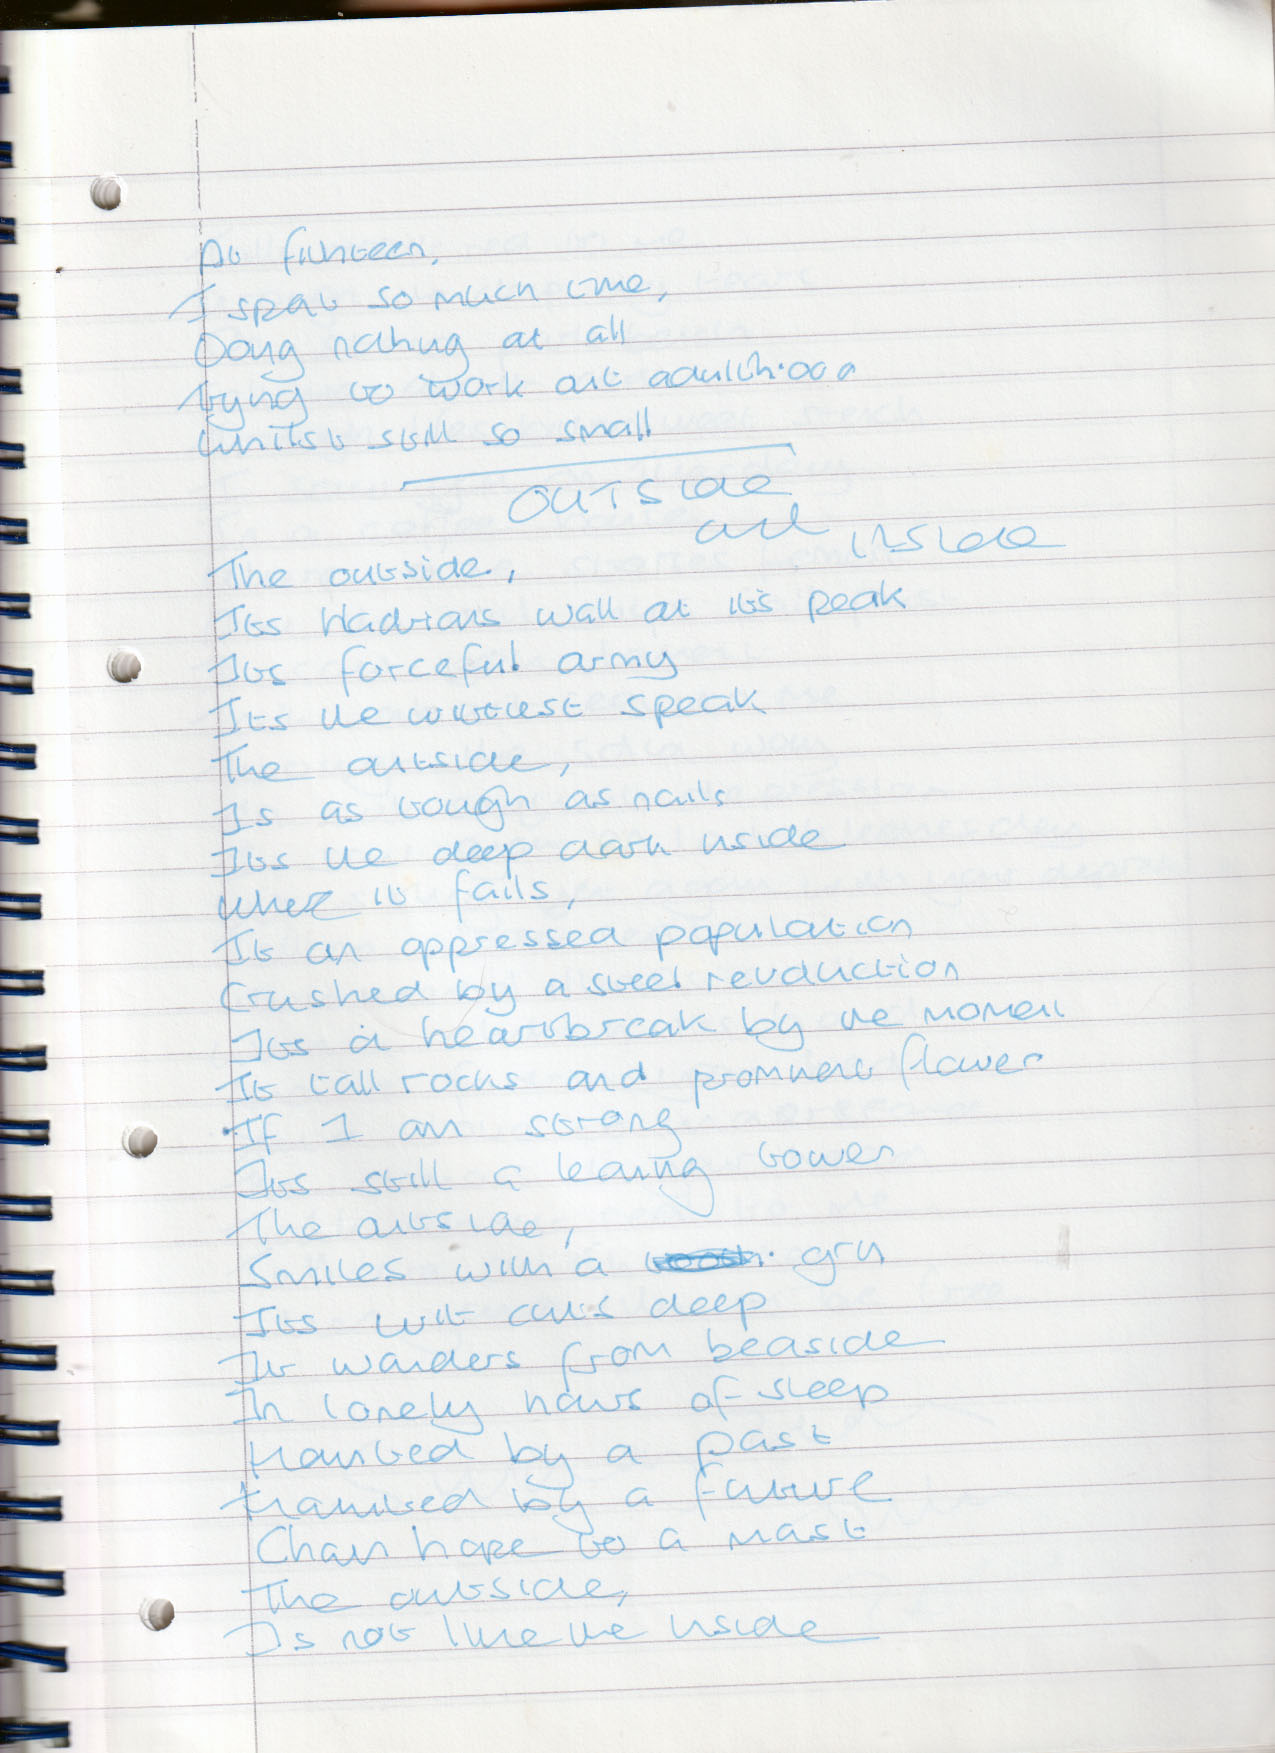 At fifhteen,
I spent so much time,
Doing nothing at all
trying to work out adulthood
whilst still so small
OUTSIDE
and inside
The outside,
Its Hadrians wall at it's peak
Its forceful army
Its the wittiest speak
The outside,
Is as tough as nails
Its the deep dark inside
where it fails,
It an oppressed population
Crushed by a steel
Its a heartbreak by the moment
It tall rocks and prominent flower
If I am strong
Its still a leaning tower
The outside,
Smiles with a grin
Its wit cuts deep
It wanders from beaside
In lonely hours of sleep
Haunted by a past
Haunted by a future
Chain hope to a mast
The outside,
Is not like the inside